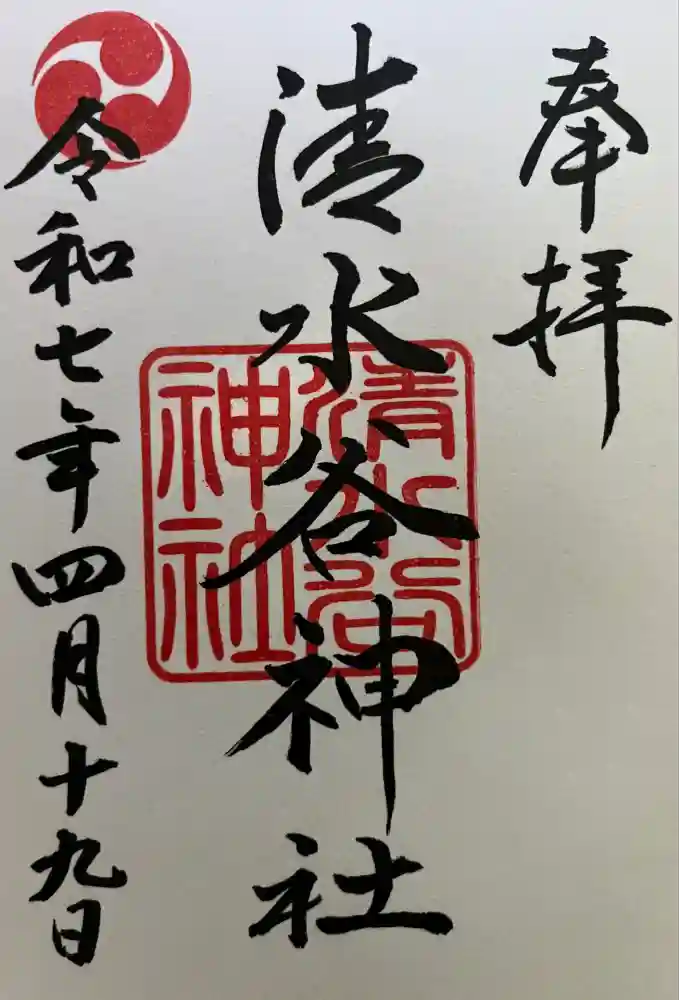 奉拝
清水谷神社
清水谷
神社
令和七年四月十九日